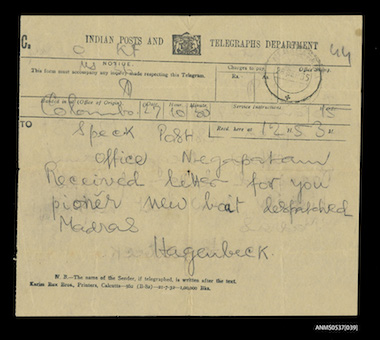 C. INDIAN POSTS AND TELEGRAPHS DEPARTMENT
NOTICE.
This form must accompany any inquiry made respecting this Telegram.
Charges to pay.
Rs As
Office Stamp.
44
Handed in at (Office of Origin). Date. Hour. Minute. Service Instructions.
Colombo 27 10 30 15
TO Recd. here at 12 H. 53 M.
Speck Post
Office Negapatam
Received letter for you
pioner new boat despatched
Madras
Hagenbeck.
N. B.—The name of the Sender, if telegraphed, is written after the text.
Karim Bux Bros., Printers, Calcutta
ANMS0537[039]